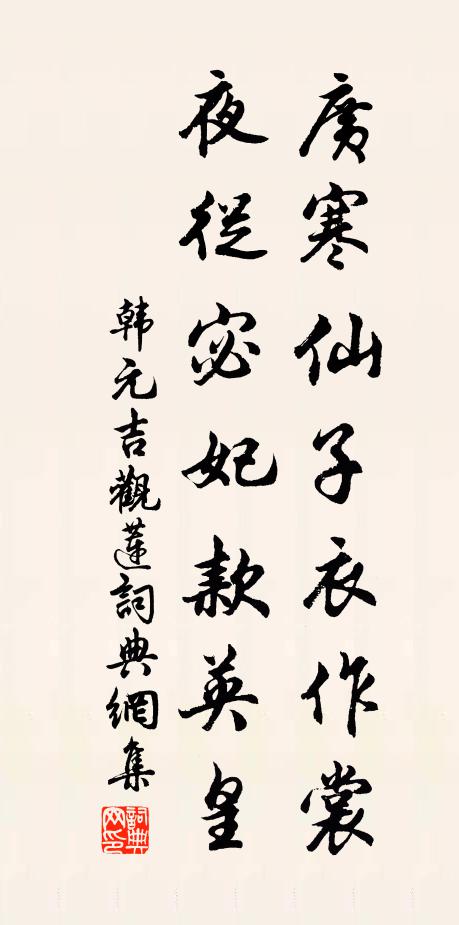 廣寒仙子衣作裳
夜從宓妃款英皇
韩元吉觀蓮詞典網集
詞典網印